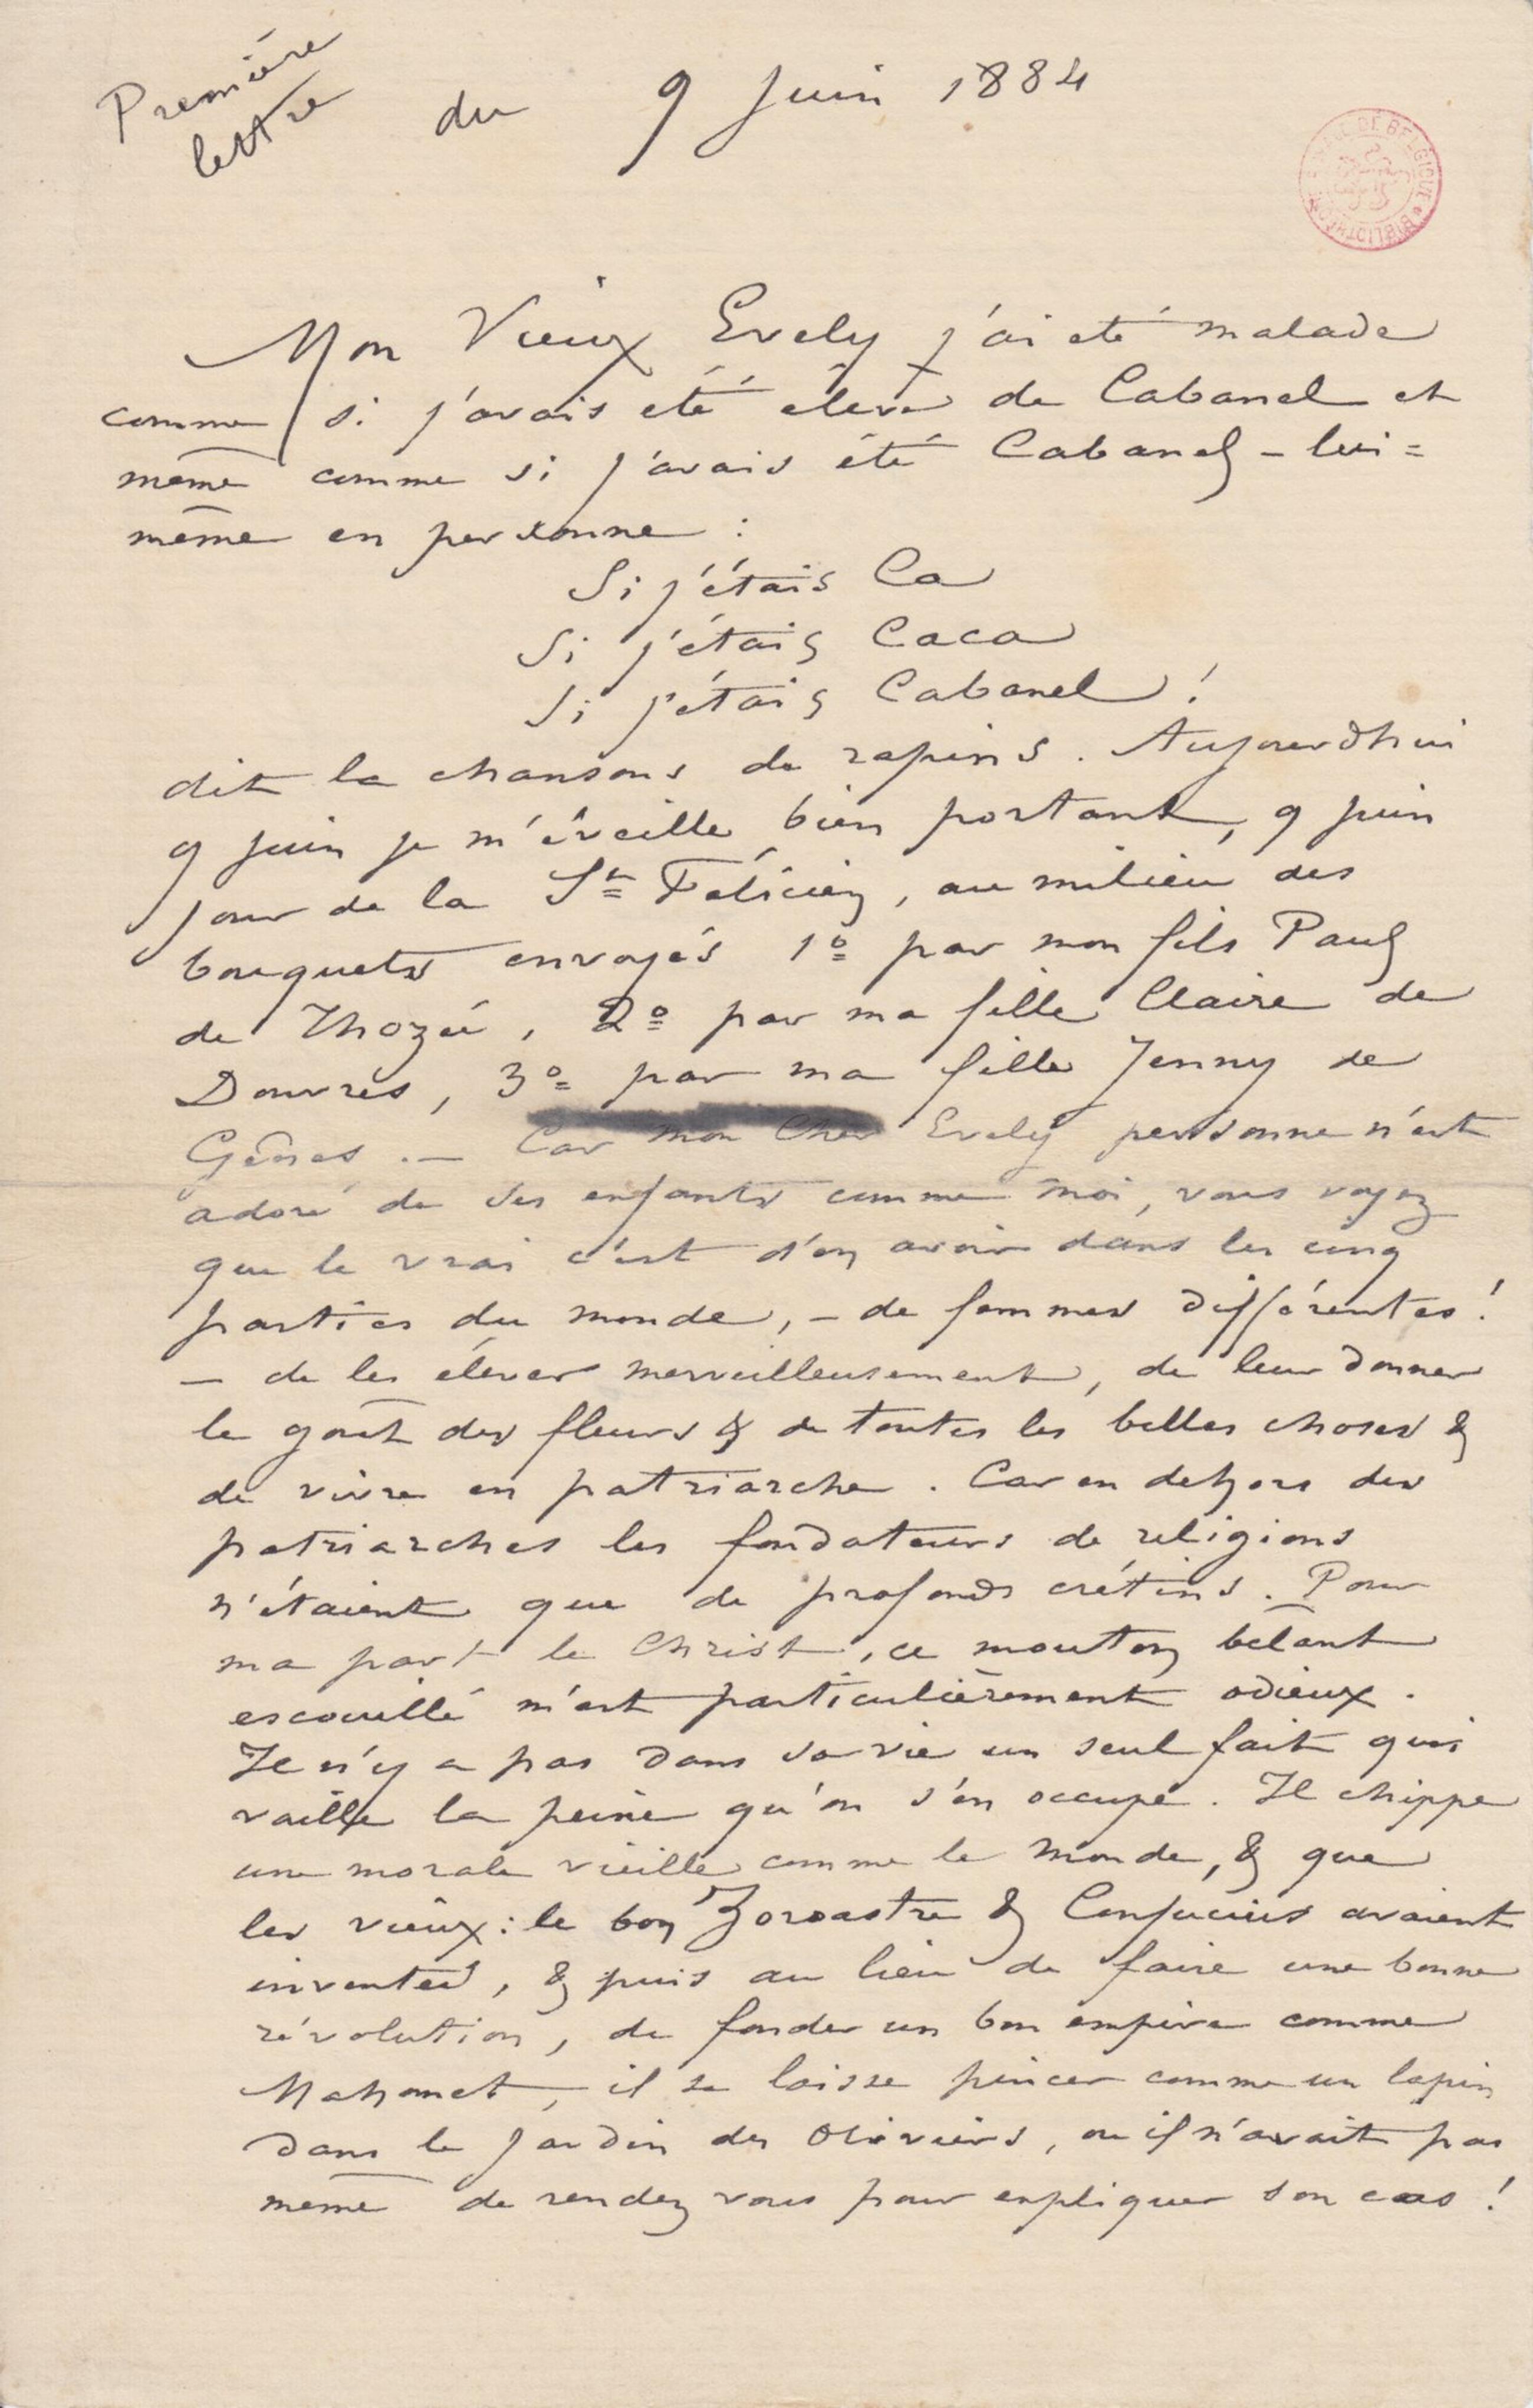 Première
lettre
du 9 Juin 1884
BIBLIOTH
DE BELGIQUE
Mon Vieux Evely j'ai eté malade
comme si j'avais eté élève de Cabanel et
même comme si j'avais été Cabanel - lui=
même en personne :
Si j'étais Ca
Si j'étais Caca
Si j'étais Cabanel !
dit la chansons de rapins. Aujourdhui
9 juin je m'éveille bien portant, 9 juin
jour de la St Félicien, au milieu des
bouquets envoyés 1º par mon fils Paul
de Thozée, 2º par ma fille Claire de
Douvres, 3º par ma fille Jenny de
Gênes. — Car mon Cher Evely personne n'est
adoré de ses enfants comme moi, vous voyez
que le vrai c'est d'en avoir dans les cinq
parties du monde, - de femmes différentes !
— de les élever merveilleusement, de leur donner
le goût des fleurs & de toutes les belles choses &
de vivre en patriarche. Car en dehors des
patriarches les fondateurs de religions
n'étaient que de profonds crétins. Pour
ma part le Christ, ce mouton bêlant
escouillé m'est particulièrement odieux.
Il n'y a pas dans sa vie un seul fait qui
vaille la peine qu'on s'en occupe. Il chippe
une morale vieille comme le monde, & que
les vieux : le bon Zoroastre & Confucius avaient
inventée, & puis au lieu de faire une bonne
révolution, de fonder un bon empire comme
Mahomet, il se laisse pincer comme un lapin
dans le jardin des Oliviers, ou il n'avait pas
même de rendez vous pour expliquer son cas !